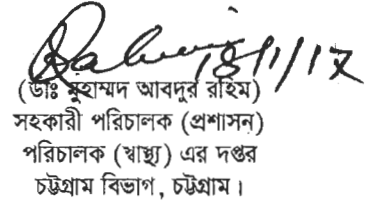 18/1/17
(ডাঃ মুহাম্মদ আবদুর রহিম)
সহকারী পরিচালক (প্রশাসন)
পরিচালক (স্বাস্থ্য) এর দপ্তর
চট্টগ্রাম বিভাগ, চট্টগ্রাম।